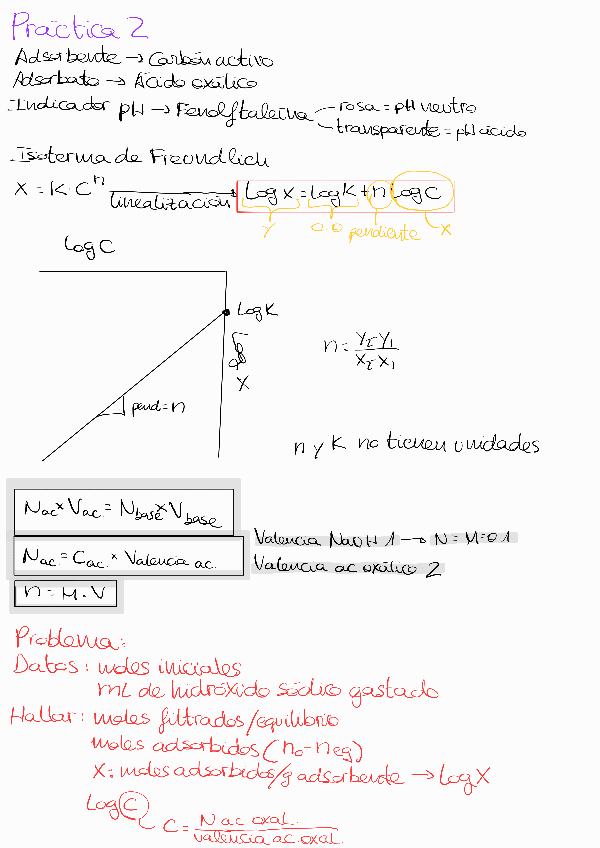 Práctica 2
Adsorbente → Carbón activo
Adsorbato → Ácido oxálico
- Indicador pH → Fenolftaleína
rosa = pH neutro
transparente = pH ácido
- Isoterma de Freundlich
X = K · Cⁿ linealización → Log X = log K + n log C
Y o.o pendiente X
Log C
Log K
Log X
pend = n
n = Y₂-Y₁ / X₂-X₁
n y K no tienen unidades
Nac × Vac. = Nbase × Vbase
Nac = Cac. × Valencia ac.
n = M · V
Valencia NaOH 1 → N = M = 0.1
Valencia ac oxálico 2
Problema:
Datos: moles iniciales
mL de hidróxido sódico gastado
Hallar: moles filtrados/equilibrio
moles adsorbidos (n₀ - neq)
X: moles adsorbidos/g adsorbente → log X
Log C
C = N ac oxal. / valencia ac oxal.